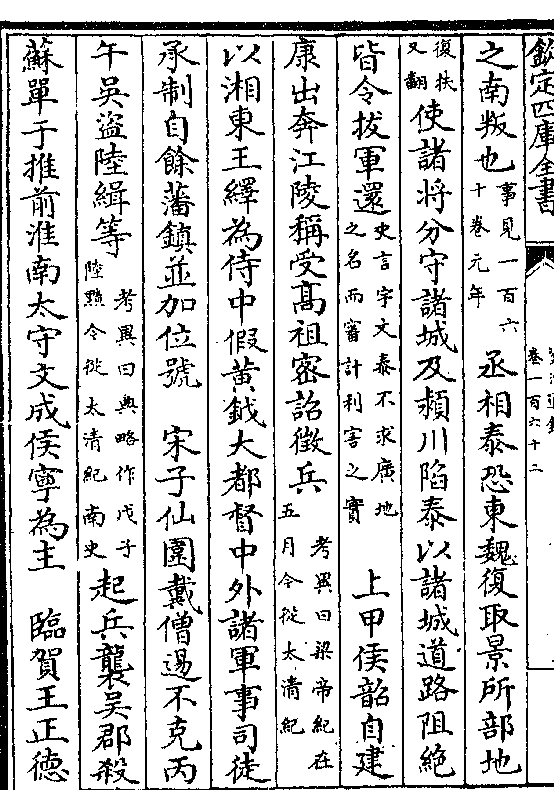 欽定四庫全書
卷一百六十二
之南叛也事見一百六十卷元年 丞相泰恐東魏復取景所部地
復扶又翻使諸將分守諸城及潁川陷泰以諸城道路阻絶
皆令拔軍還史言宇文泰不求廣地之名而審計利害之實 上甲侯韶自建
康出奔江陵稱受髙祖密詔徵兵考異曰梁帝紀在五月今從太清紀
以湘東王繹為侍中假黄鉞大都督中外諸軍事司徒
承制自餘藩鎮並加位號 宋子仙圍戴僧逷不克丙
午吳盜陸緝等考異曰典略作戊子陸黯今從太清紀南史起兵襲吳郡殺
蘇單于推前淮南太守文成侯寧為主 臨賀王正德